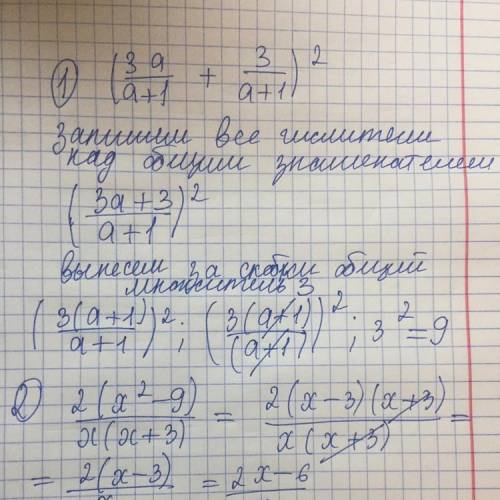 1) (3a/(a+1) + 3/(a+1))²
Запишем все числители
над общим знаменателем
((3a+3)/(a+1))²
вынесем за скобки общий
множитель 3
(3(a+1)/(a+1))²; (3(a+1)/(a+1))²; 3² = 9
2) 2(x²-9)/(x(x+3)) = 2(x-3)(x+3)/(x(x+3)) =
= 2(x-3)/x = (2x-6)/